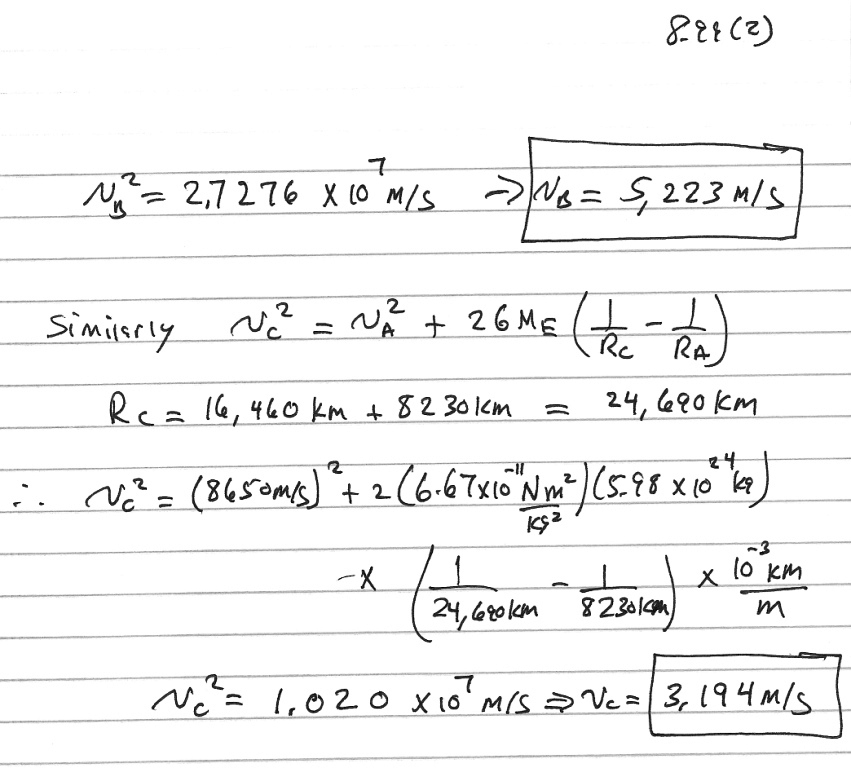 8-99(2)
v_B² = 2,7276 × 10⁷ M/S ⇒ v_B = 5,223 M/S
Similarly v_C² = v_A² + 2GM_E (1/R_C - 1/R_A)
R_C = 16,460 km + 8230 km = 24,690 km
∴ v_C² = (8650 m/s)² + 2(6.67×10⁻¹¹ Nm²/kg²)(5.98 × 10²⁴ kg)
-× (1/24,690km - 1/8230km) × 10⁻³ km/m
v_C² = 1.020 × 10⁷ m/s ⇒ v_C = 3,194 m/s